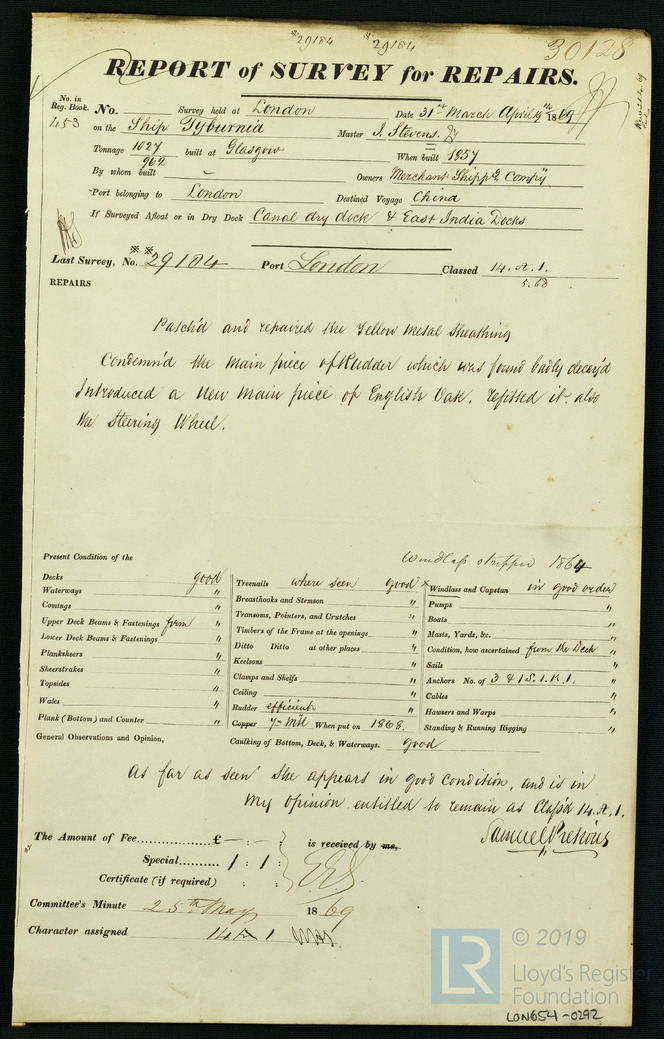 *29184 *29184 30128
REPORT of SURVEY for REPAIRS.
No. in
Reg. Book.
453
No. Survey held at London Date 31st March April 9th 1869
on the Ship Tyburnia Master J. Stevens.
Tonnage 1027 962 built at Glasgow When built 1857
By whom built - Owners Merchant Shippg Compy
Port belonging to London Destined Voyage China
If Surveyed Afloat or in Dry Dock Canal dry dock & East India Docks
Last Survey, No. **29184 Port London Classed 14.A.1.
5.68
REPAIRS
Patch'd and repaired the Yellow Metal Sheathing
Condemn'd the main piece of Rudder which was found badly decay'd
Introduced a New Main piece of English Oak. refitted it. also
the Steering Wheel.
Windlass stripped 1864
Present Condition of the
Decks good
Waterways "
Comings "
Upper Deck Beams & Fastenings firm "
Lower Deck Beams & Fastenings "
Planksheers "
Sheerstrakes "
Topsides "
Wales "
Plank (Bottom) and Counter "
General Observations and Opinion,
Treenails where seen good
Breasthooks and Stemson "
Transoms, Pointers, and Crutches "
Timbers of the Frame at the openings "
Ditto Ditto at other places "
Keelsons "
Clamps and Shelfs "
Ceiling "
Rudder efficient "
Copper Y. Mtl When put on 1868
Caulking of Bottom, Deck, & Waterways. good
x Windlass and Capstan in good order
Pumps "
Boats "
Masts, Yards, &c. "
Condition, how ascertained from the Deck "
Sails "
Anchors No. of 3 & 1 S. 1. K. 1. "
Cables "
Hawsers and Warps "
Standing & Running Rigging "
As far as seen She appears in good condition, and is in
My Opinion entitled to remain as Class'd 14.A.1.
Samuel Pretious
The Amount of Fee £ - : - : is received by me,
Special 1 : 1 :
Certificate (if required) : :
Committee's Minute 25th May 1869
Character assigned 14 A 1
© 2019
LR Lloyd's Register
Foundation
LON654-0292